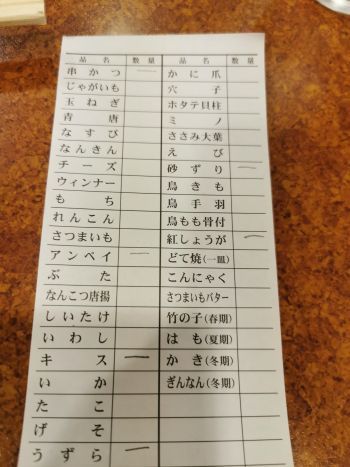 品名 数量 品名 数量
串かつ 一 かに爪
じゃがいも 穴子
玉ねぎ ホタテ貝柱
青唐 ミノ
なすび ささみ大葉
なんきん えび
チーズ 砂ずり 一
ウィンナー 鳥きも
もち 鳥手羽
れんこん 鳥もも骨付
さつまいも 紅しょうが 一
アンペイ 一 どて焼(一皿)
ぶた こんにゃく
なんこつ唐揚 さつまいもバター
しいたけ 竹の子(春期)
いわし はも(夏期)
キス 一 かき(冬期)
いか ぎんなん(冬期)
たこ
げそ
うずら 一